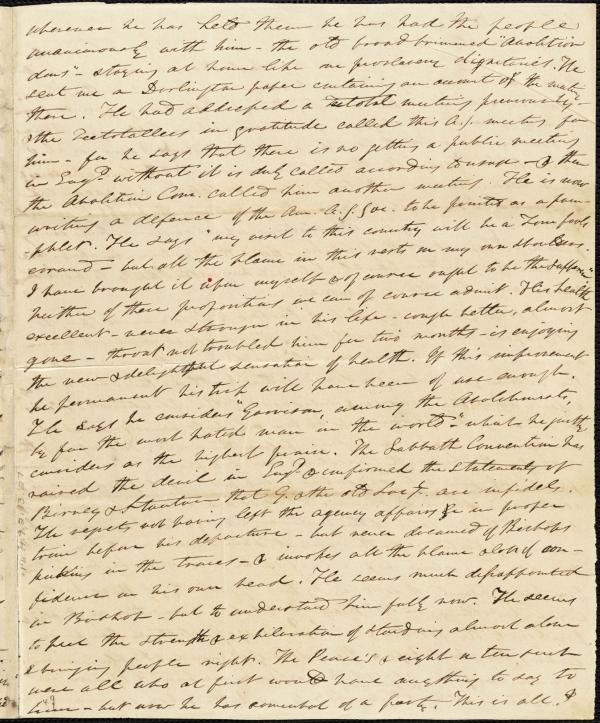 wherever he has held them he has had the people
unanimously with him - the old broad brimmed "Abolition
dons" - staying at home like our proslavery dignitaries. He
sent me a Darlington paper containing an account of the meeting
there. He had addressed a teetotal meeting previously
& the Teetotallers in gratitude called this A.S. meeting for
him - for he says that there is no getting a public meeting
in Engd. without it is duly called according to usage - & then
the Abolition Com. called him another meeting. He is now
writing a defence of the Am. A.S. Soc. to be printed as a pam-
phlet. He says "my visit to this country will be a Tom fool's
errand - but all the blame in this rests on my own shoulders.
I have brought it upon myself & of course ought to be the sufferer"
Neither of these propositions we can of course admit. His health
excellent - never stronger in his life - cough better, almost
gone - throat not troubled him for two months - is enjoying
the new & delightful sensation of health. If this improvement
be permanent his trip will have been of use enough.
He says he considers "Garrison, among the Abolitionists,
by far the most hated man in the world -" which he justly
considers as the highest praise. The Sabbath Convention has
raised the devil in Engd. & confirmed the statements of
Birney & Stanton that G. & the old Soc.y. are infidels.
He regrets not having left the agency affairs in proper
train before his departure - but never dreamed of Bishop's
kicking in the traces - & invokes all the blame of con-
fidence on his own head. He seems much disappointed
in Bishop - but to understand him fully now. He seems
to feel the strength & exhilaration of standing almost alone
& bringing people right. The Pease's & eight or ten such
were all who at first would have anything to say to
him - but now he has somewhat of a party. This is all. &